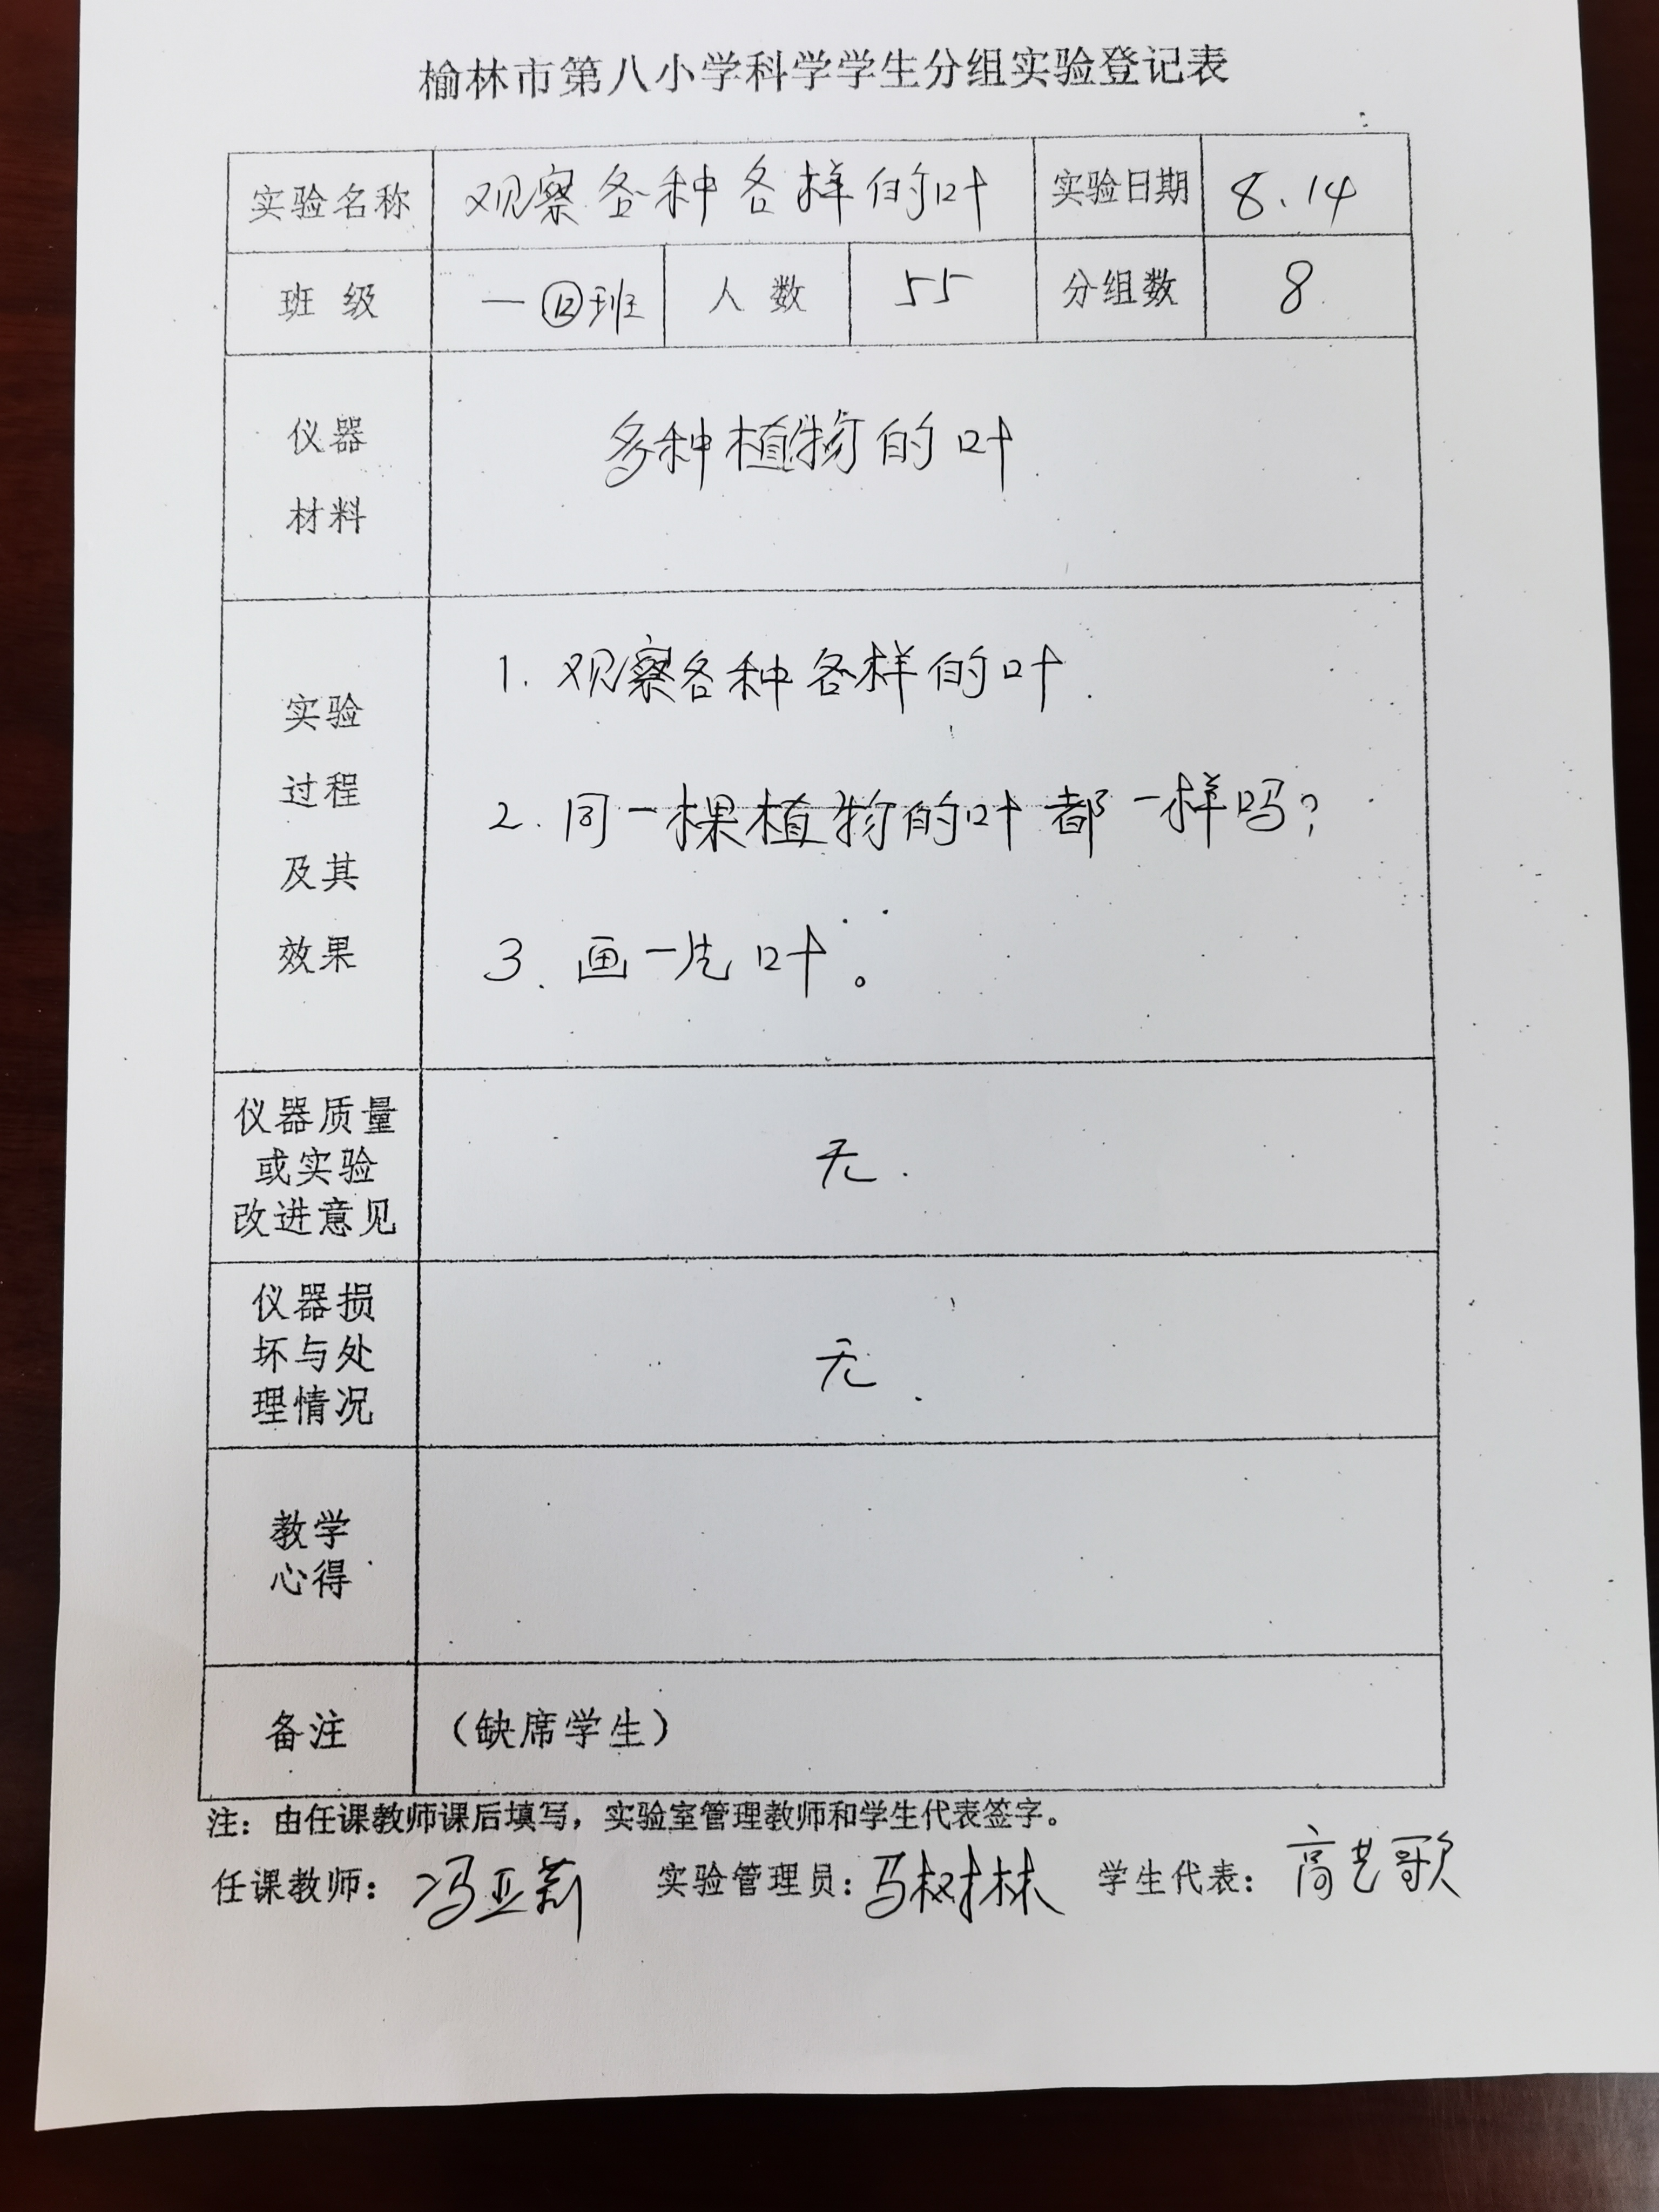 榆林市第八小学科学学生分组实验登记表
实验名称 观察各种各样的叶 实验日期 8.14
班 级 一⑫班 人 数 55 分组数 8
仪器
材料
多种植物的叶
实验
过程
及其
效果
1. 观察各种各样的叶.
2. 同一棵植物的叶都一样吗?
3. 画一片叶。
仪器质量
或实验
改进意见
无.
仪器损
坏与处
理情况
无.
教学
心得
备注 (缺席学生)
注:由任课教师课后填写,实验室管理教师和学生代表签字。
任课教师: 冯亚莉 实验管理员: 马树林 学生代表: 高艺歌